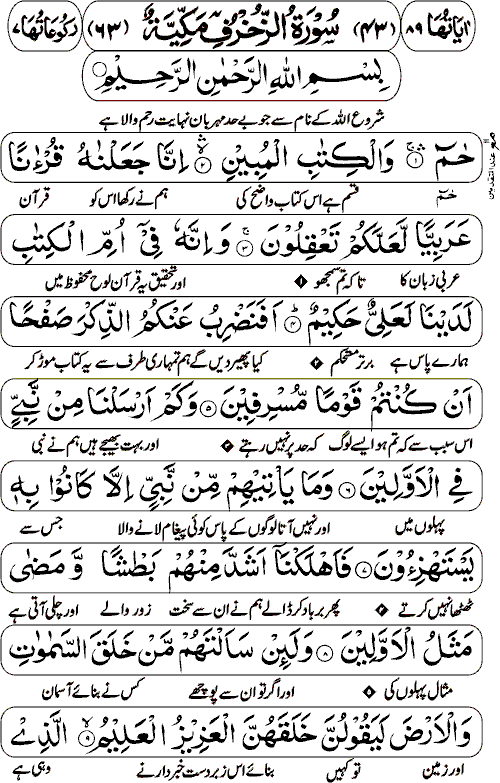 اٰیَاتُهَا ٨٩ (٤٣) سُوْرَةُ الزُّخْرُفِ مَكِّیَّةٌ (٦٣) رُكُوْعَاتُهَا ٧
بِسْمِ اللّٰهِ الرَّحْمٰنِ الرَّحِیْمِ
شروع اللہ کے نام سے جو بے حد مہربان نہایت رحم والا ہے
حٰمٓ ١ وَالْكِتٰبِ الْمُبِیْنِ ٢ اِنَّا جَعَلْنٰهُ قُرْءٰنًا
حٰمٓ قسم ہے اس کتاب واضح کی ہم نے رکھا اس کو قرآن
عَرَبِیًّا لَّعَلَّكُمْ تَعْقِلُوْنَ ٣ وَاِنَّهٗ فِیْۤ اُمِّ الْكِتٰبِ
عربی زبان کا تاکہ تم سمجھو اور تحقیق یہ قرآن لوح محفوظ میں
لَدَیْنَا لَعَلِیٌّ حَكِیْمٌ ٤ اَفَنَضْرِبُ عَنْكُمُ الذِّكْرَ صَفْحًا
ہمارے پاس ہے برتر مستحکم کیا پھیر دیں گے ہم تمہاری طرف سے یہ کتاب موڑ کر
اَنْ كُنْتُمْ قَوْمًا مُّسْرِفِیْنَ ٥ وَكَمْ اَرْسَلْنَا مِنْ نَّبِیٍّ
اس سبب سے کہ تم ہو ایسے لوگ کہ حد پر نہیں رہتے اور بہت بھیجے ہیں ہم نے نبی
فِی الْاَوَّلِیْنَ ٦ وَمَا یَاْتِیْهِمْ مِّنْ نَّبِیٍّ اِلَّا كَانُوْا بِهٖ
پہلوں میں اور نہیں آتا لوگوں کے پاس کوئی پیغام لانے والا جس سے
یَسْتَهْزِءُوْنَ ٧ فَاَهْلَكْنَاۤ اَشَدَّ مِنْهُمْ بَطْشًا وَّمَضٰی
ٹھٹھا نہیں کرتے پھر برباد کر ڈالے ہم نے ان سے سخت زور والے اور چلی آتی ہے
مَثَلُ الْاَوَّلِیْنَ ٨ وَلَىِٕنْ سَاَلْتَهُمْ مَّنْ خَلَقَ السَّمٰوٰتِ
مثال پہلوں کی اور اگر تو ان سے پوچھے کس نے بنائے آسمان
وَالْاَرْضَ لَیَقُوْلُنَّ خَلَقَهُنَّ الْعَزِیْزُ الْعَلِیْمُ ٩ الَّذِیْ
اور زمین تو کہیں بنائے اس زبردست خبردار نے وہی ہے